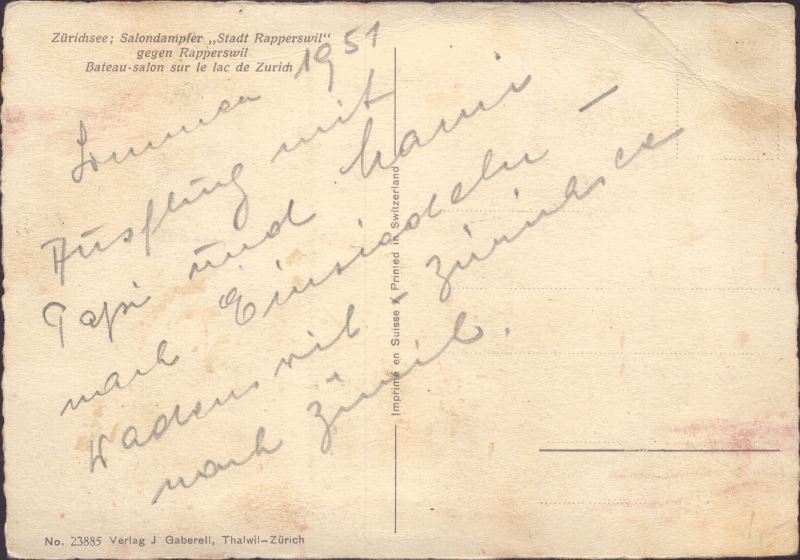 Zürichsee; Salondampfer „Stadt Rapperswil"
gegen Rapperswil
Bateau-salon sur le lac de Zurich
Sommer 1951
Ausflug mit
Papi und Mami
nach Einsiedeln –
Wadenswil – Zürichsee
nach Zürich.
Imprimé en Suisse X Printed in Switzerland
No. 23885 Verlag J Gaberell, Thalwil-Zürich
1,-